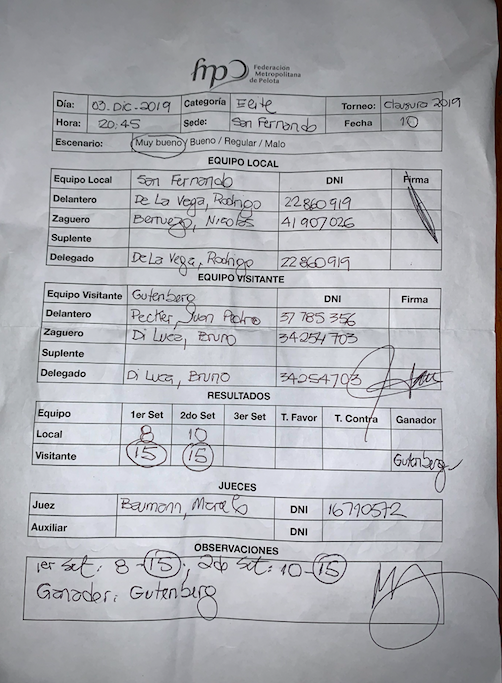 fmp Federación
Metropolitana
de Pelota
Día: 03. DIC. 2019 Categoría Elite Torneo: Clausura 2019
Hora: 20:45 Sede: San Fernando Fecha 10
Escenario: Muy bueno / Bueno / Regular / Malo
EQUIPO LOCAL
Equipo Local San Fernando DNI Firma
Delantero De La Vega, Rodrigo 22860919
Zaguero Berruezo, Nicolás 41907026
Suplente
Delegado De La Vega, Rodrigo 22860919
EQUIPO VISITANTE
Equipo Visitante Gutenberg DNI Firma
Delantero Pecker, Juan Pedro 37785356
Zaguero Di Luca, Bruno 34254703
Suplente
Delegado Di Luca, Bruno 34254703
RESULTADOS
Equipo 1er Set 2do Set 3er Set T. Favor T. Contra Ganador
Local 8 10
Visitante 15 15 Gutenberg
JUECES
Juez Baumann, DNI 16710572
Auxiliar DNI
OBSERVACIONES
1er Set: 8-15; 2do Set: 10-15
Ganador: Gutenberg